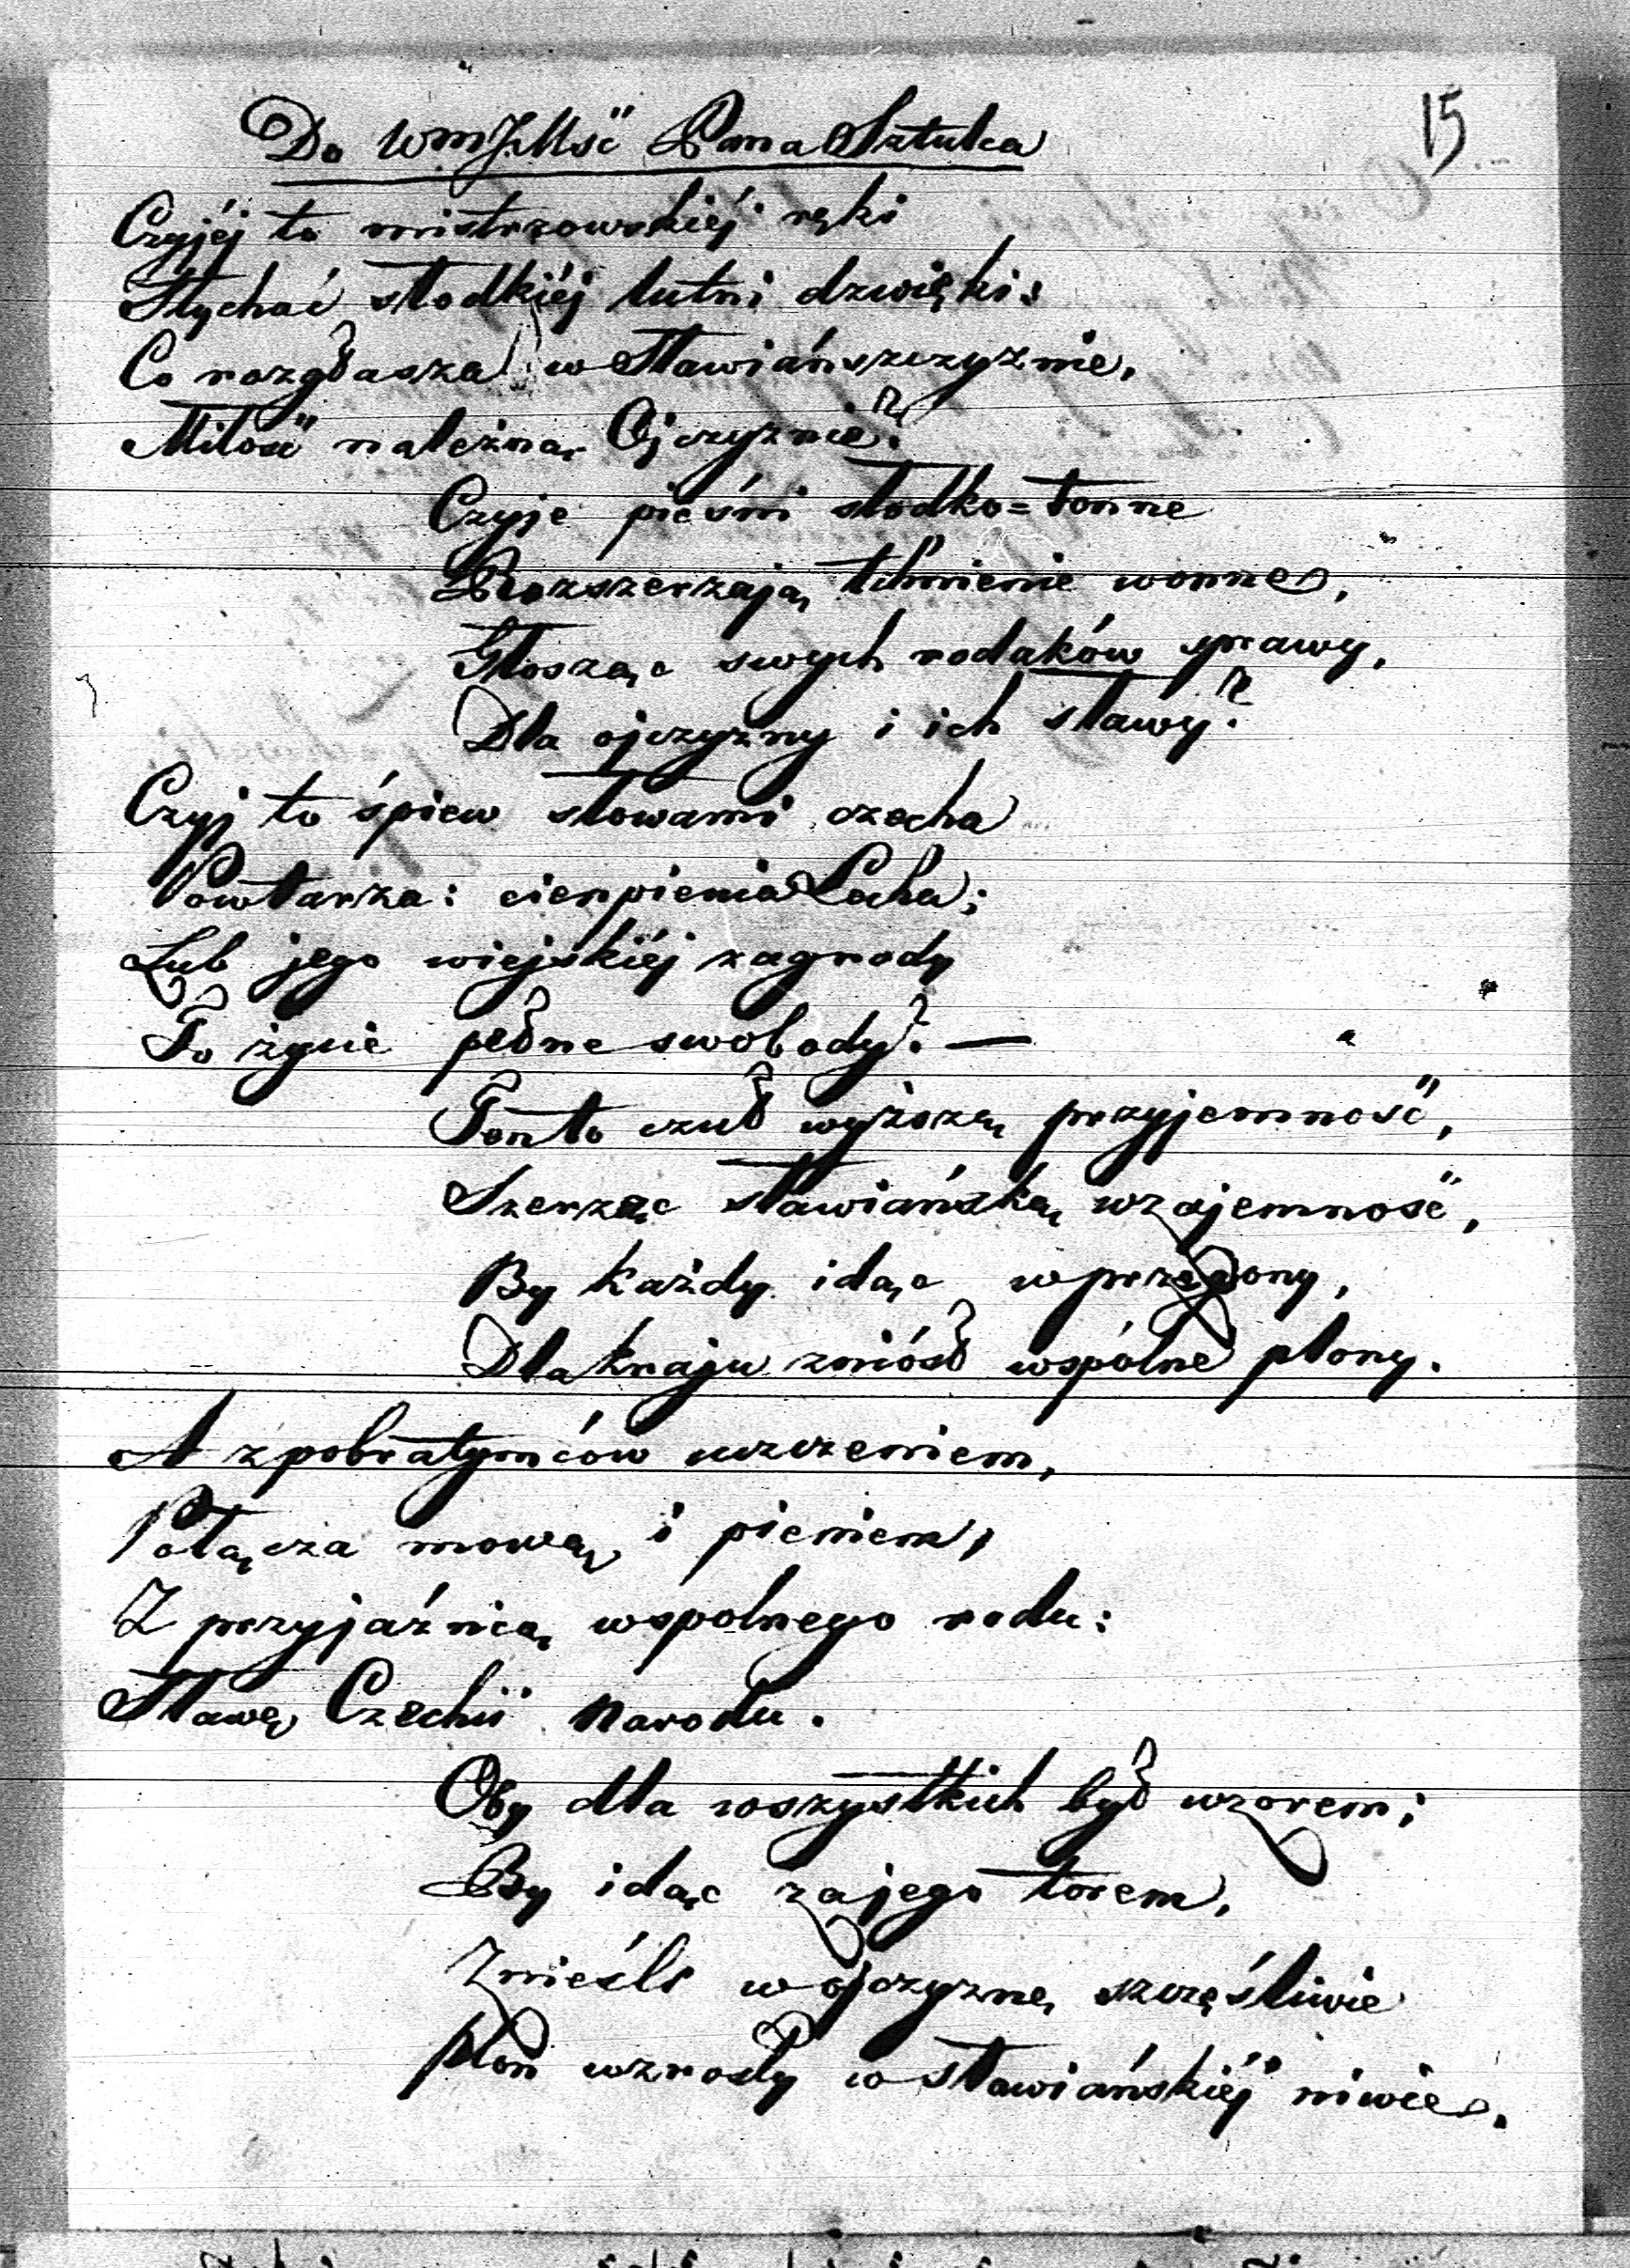 15
Do WmJMść Pana Sztulca
Czyjéj to mistrzowskiéj ręki
Słychać słodkiéj lutni dzwięki:
Co rozgłasza w Sławiańszczyznie,
Miłość należną Ojczyznie?
Czyje pieśni słodko=tonne
Rozszerzają tchnienie wonne,
Głosząc swych rodaków sprawy,
Dla ojczyzny i ich sławy?
Czyj to śpiew słowami czecha
Powtarza: cierpienia Lecha;
Lub jego wiejskiéj zagrody
To życie pełne swobody? —
Ton to czuł wyższą przyjemność,
Szerząc sławiańską wzajemność,
By każdy idąc w przegony,
Dla kraju zniósł wspólne plony.
A z pobratymców uczczeniem,
Połącza mową i pieniem,
Z przyjaźnią wspolnego rodu:
Sławę Czechii Narodu.
Oby dla wszystkich był wzorem;
By idąc za jego torem,
Znieśli w ojczyznę szczęśliwie
Plon wzrosły w sławiańskiéj niwie.